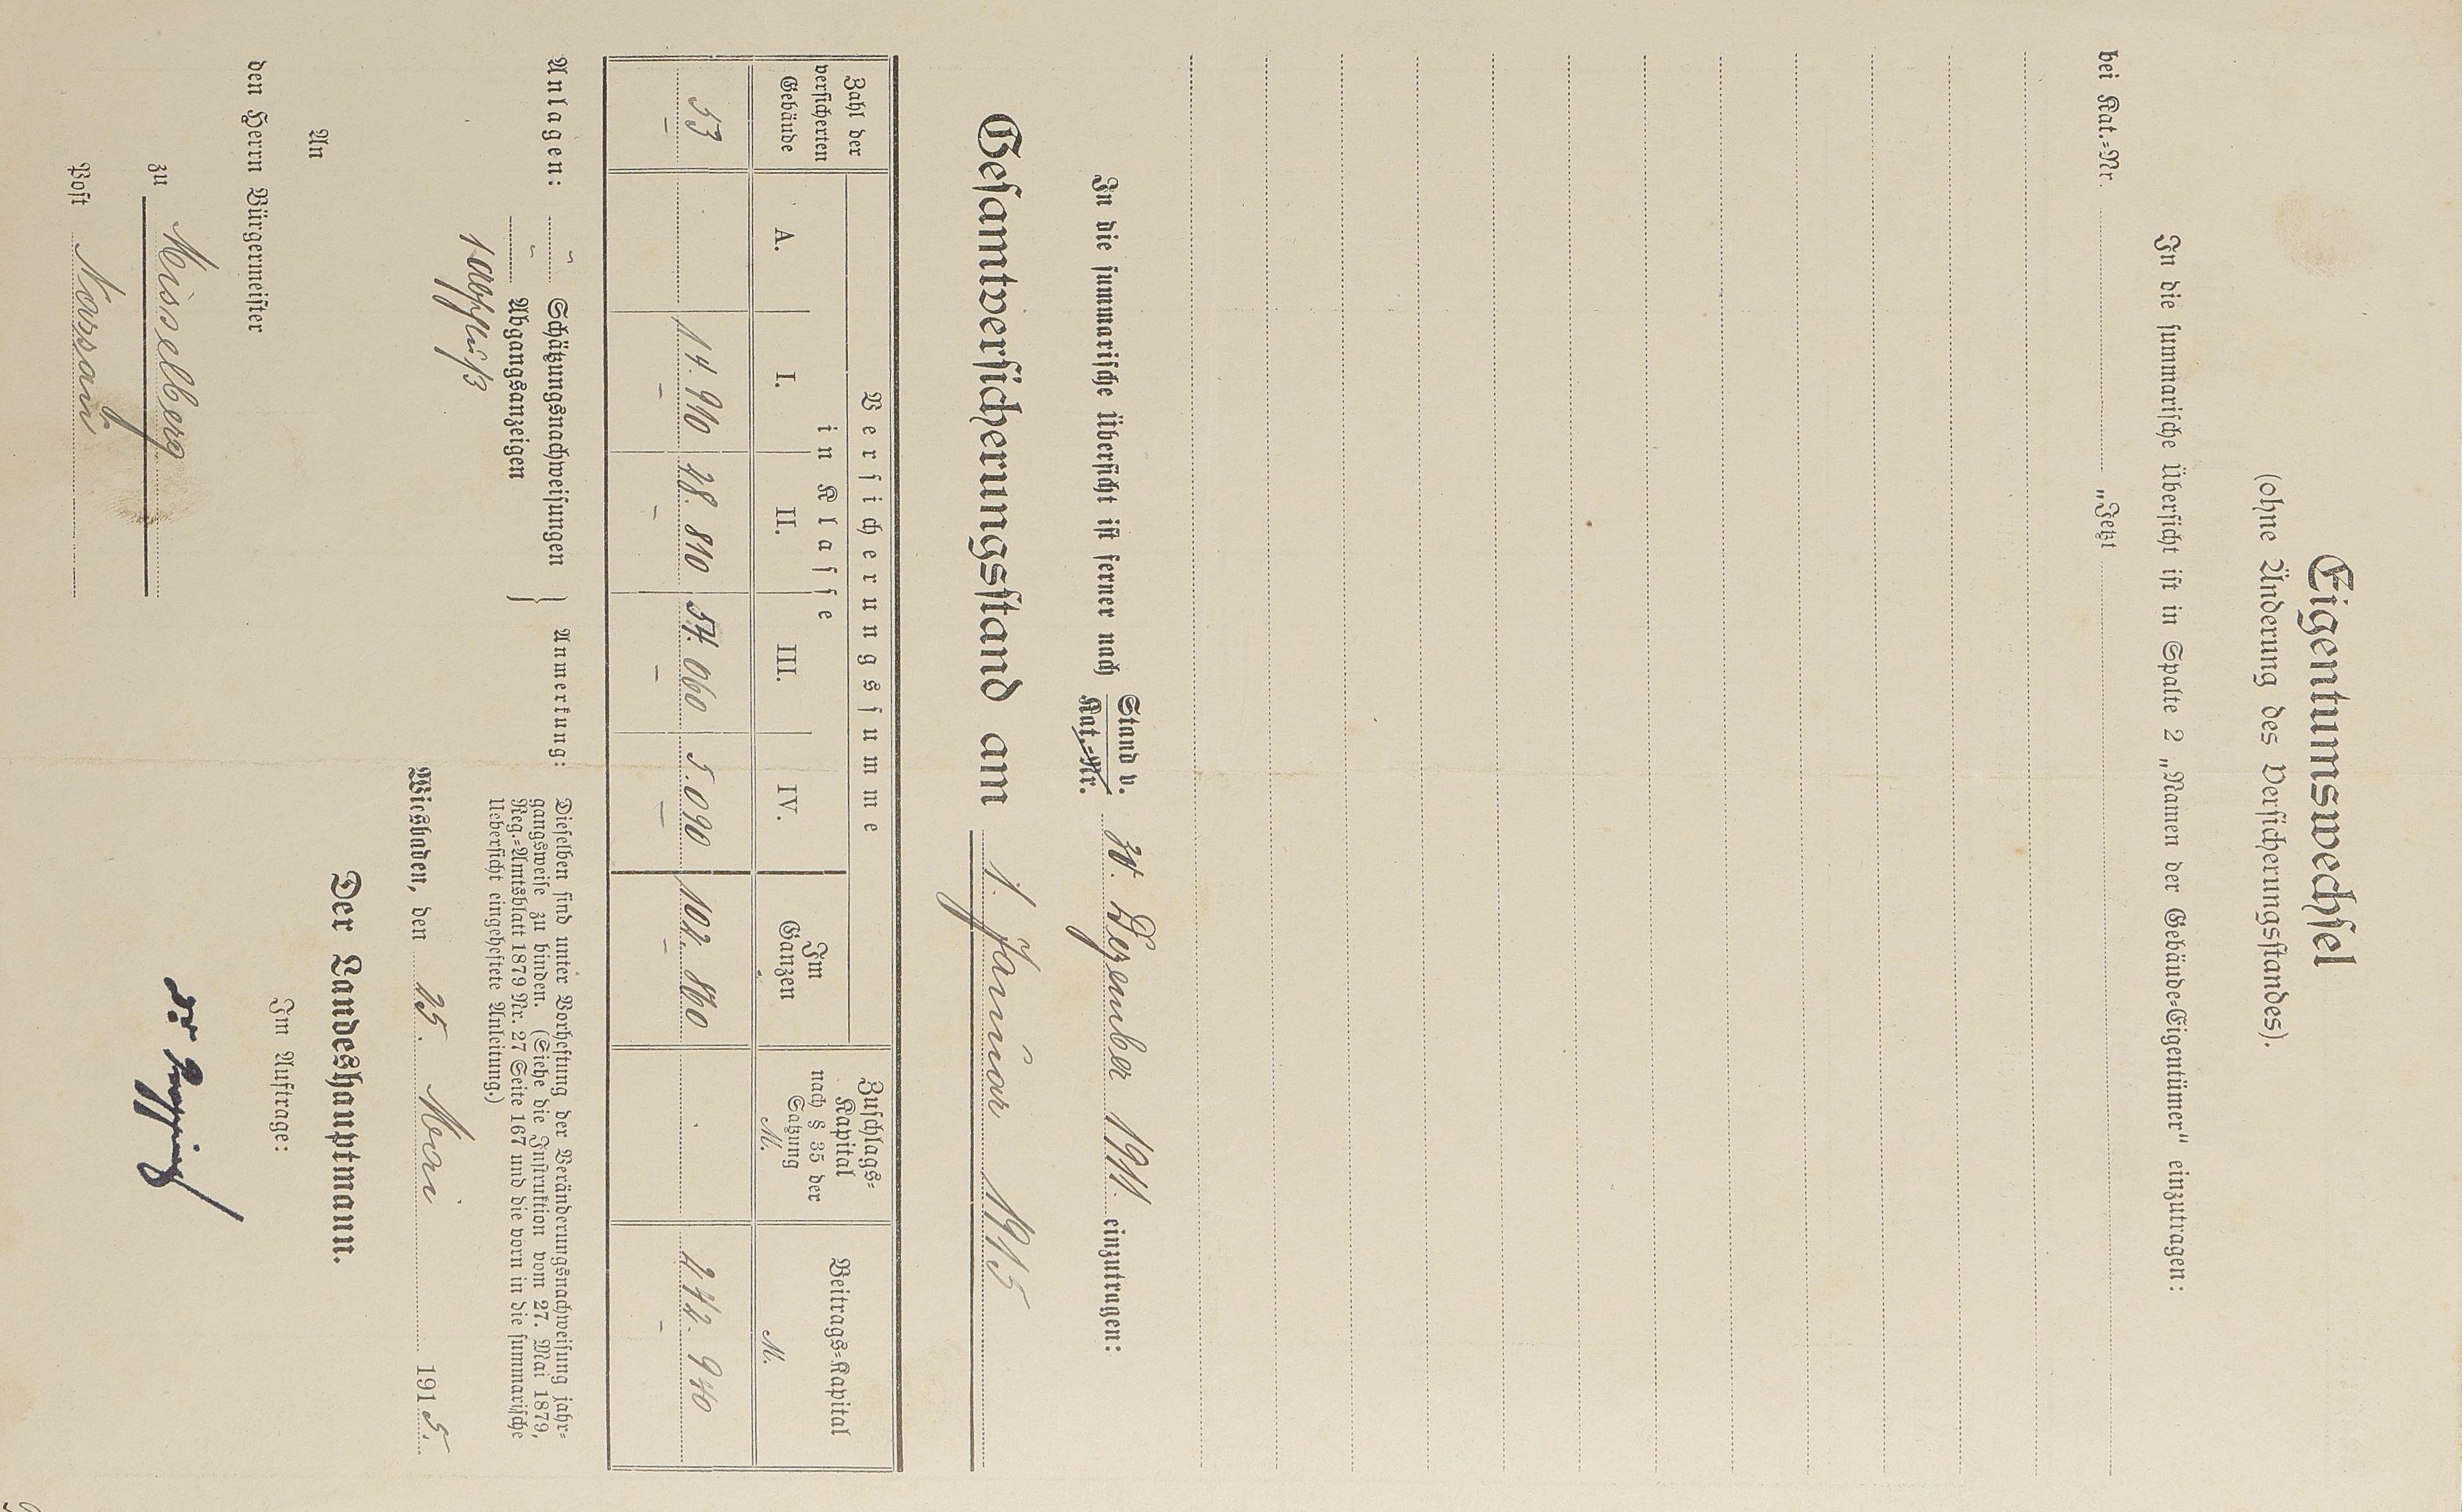 Eigentumswechsel
(ohne Änderung des Versicherungsstandes).
In die summarische Übersicht ist in Spalte 2 „Namen der Gebäude=Eigentümer" einzutragen:
bei Kat.=Nr. „Jetzt
In die summarische Übersicht ist ferner nach Stand v. 31. Dezember 1911. einzutragen:
Kat.=Nr.
Gesamtversicherungsstand am 1. Januar 1915
Zahl der versicherten Gebäude
Versicherungssumme
in Klasse
A. I. II. III. IV.
Im Ganzen
Zuschlags=Kapital nach § 35 der Satzung M.
Beitrags=Kapital M.
53 28.810 54.060 5.090 102.860
Anlagen: „ Schätzungsnachweisungen
„ Abgangsanzeigen
1 Abschluß
Anmerkung: Dieselben sind unter Vorheftung der Veränderungsnachweisung jahr=
gangsweise zu binden. (Siehe die Instruktion vom 27. Mai 1879,
Reg.=Amtsblatt 1879 Nr. 27 Seite 167 und die vorn in die summarische
Uebersicht eingeheftete Anleitung.)
Wiesbaden, den 25. Mai 1915.
Der Landeshauptmann.
Im Auftrage:
An
den Herrn Bürgermeister
zu Misselberg
Post Nassau